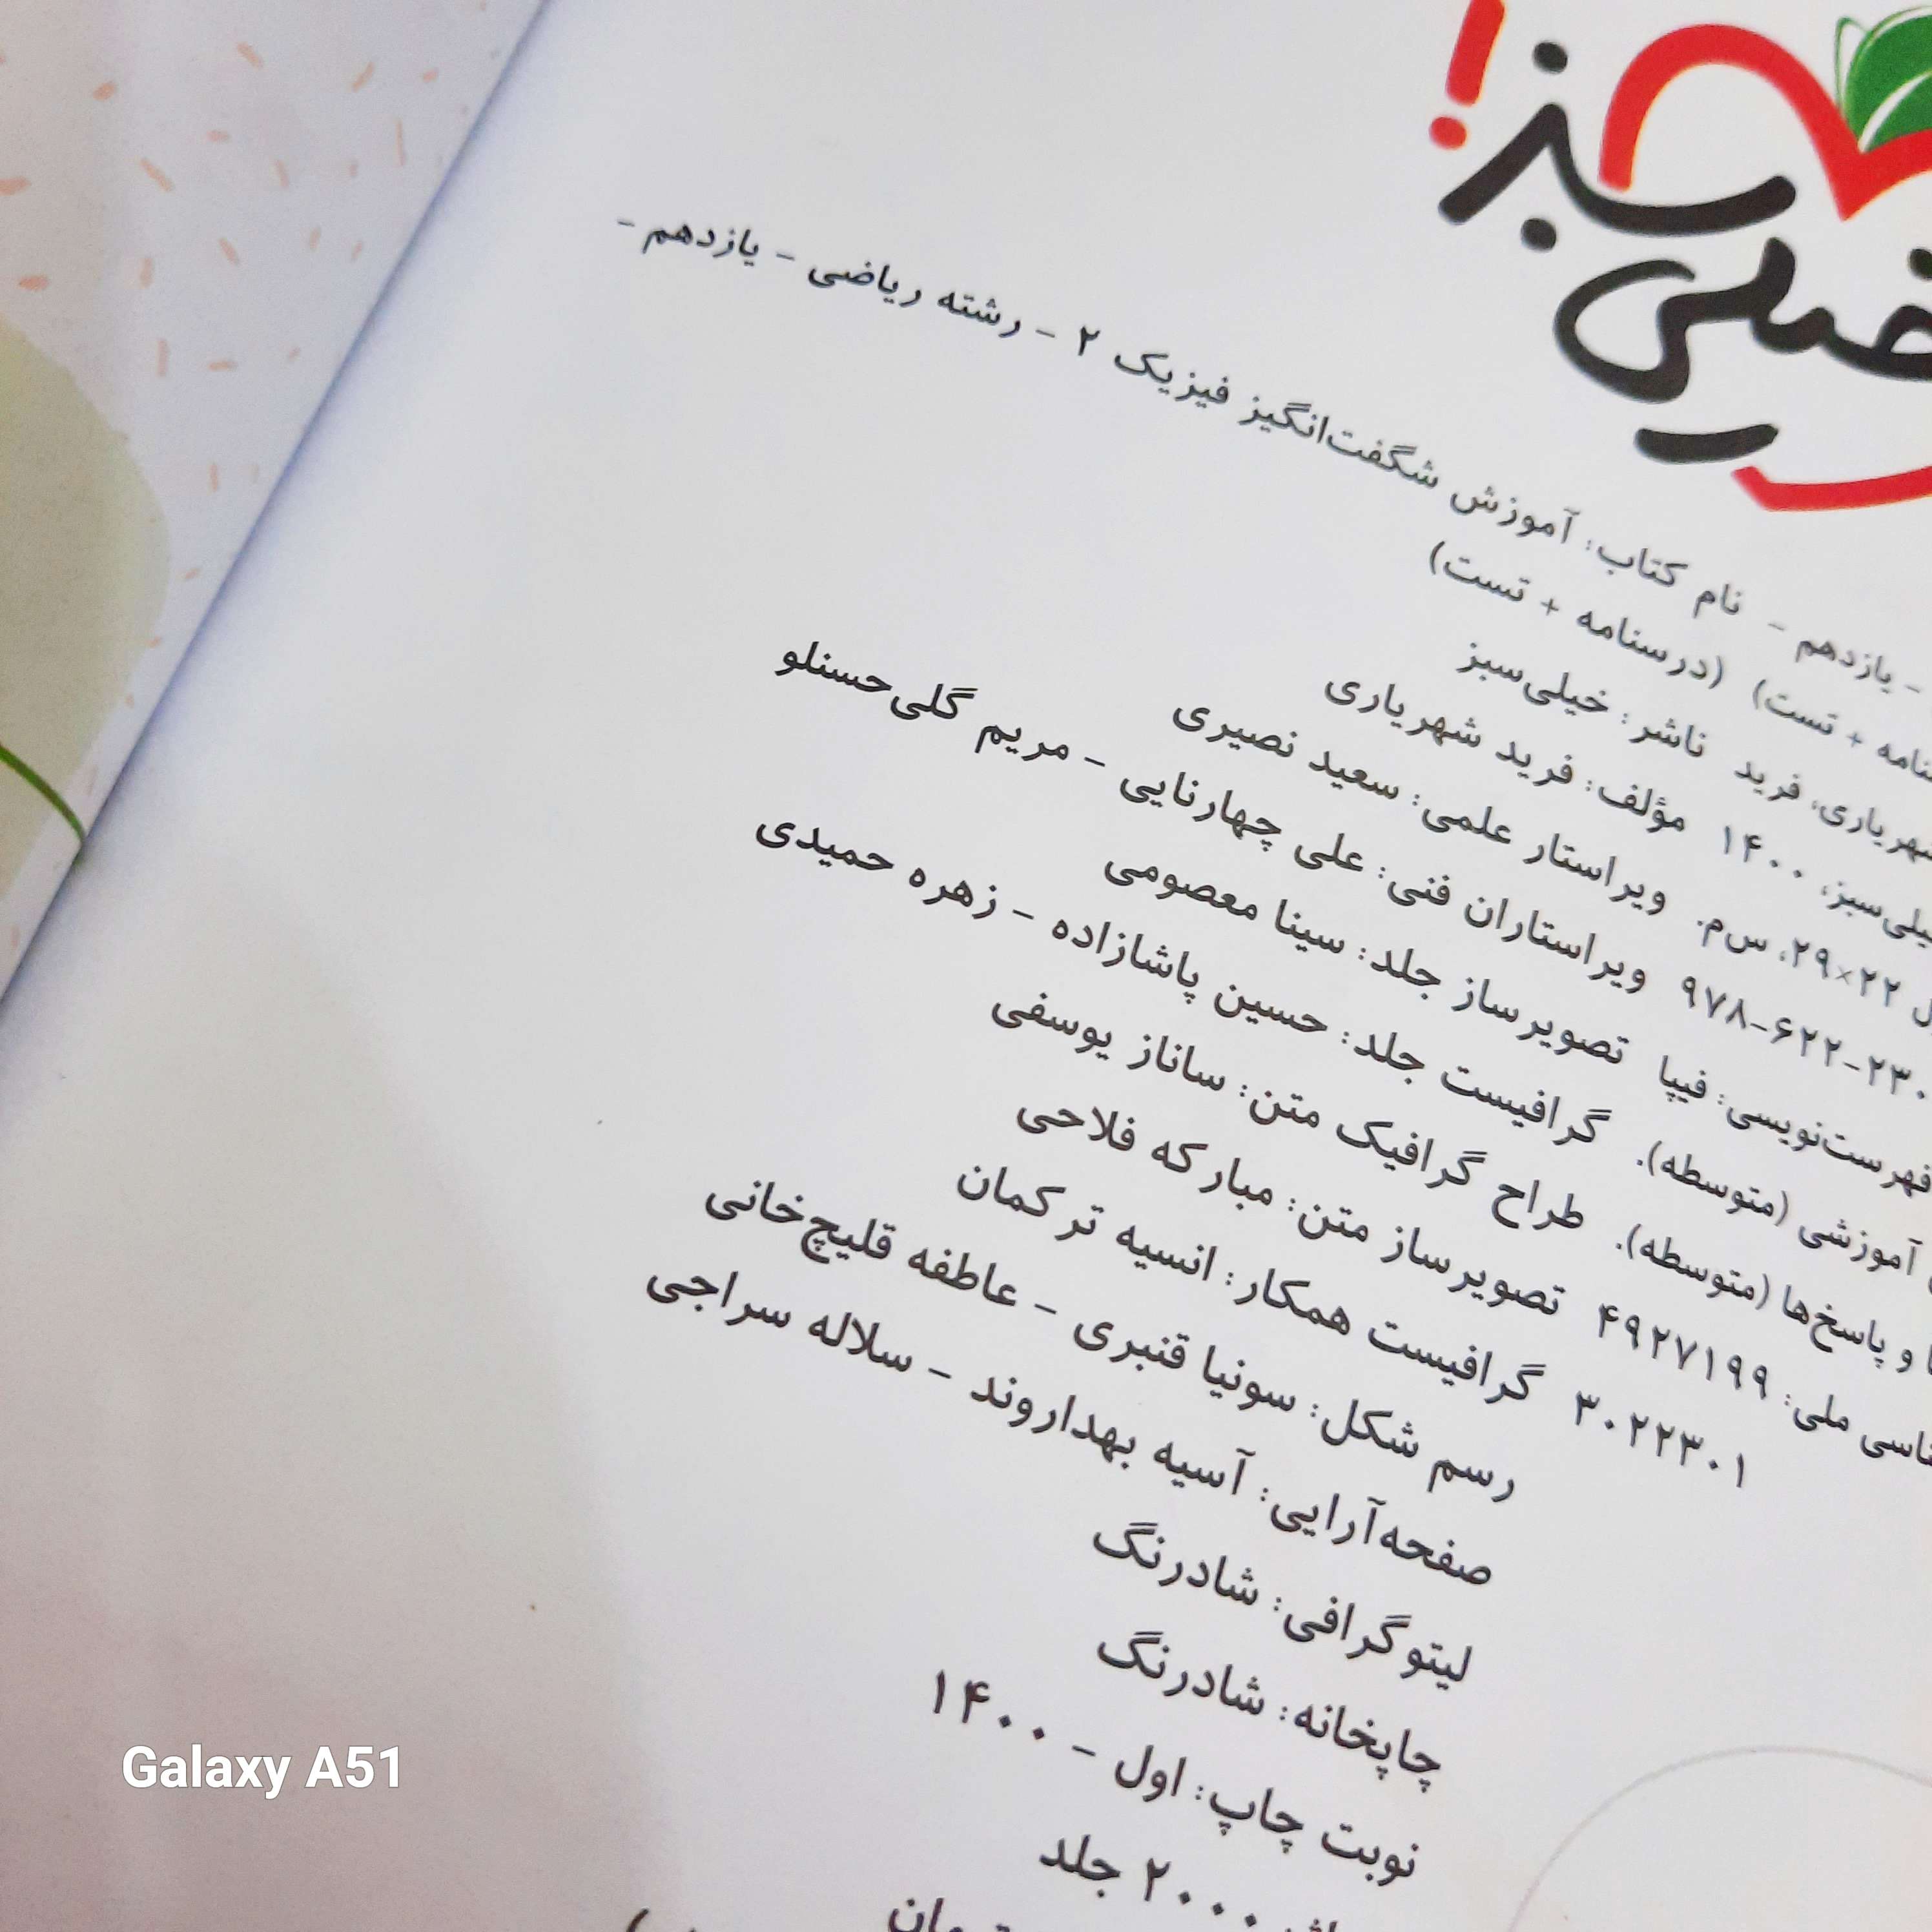 خیلی سبز!
نام کتاب: آموزش شگفت‌انگیز فیزیک ۲ - رشته ریاضی - یازدهم -
(درسنامه + تست)
ناشر: خیلی‌سبز
مؤلف: فرید شهریاری
ویراستار علمی: سعید نصیری
ویراستاران فنی: علی چهارنایی - مریم گلی‌حسنلو
تصویرساز جلد: سینا معصومی
گرافیست جلد: حسین پاشازاده - زهره حمیدی
طراح گرافیک متن: ساناز یوسفی
تصویرساز متن: مبارکه فلاحی
گرافیست همکار: انسیه ترکمان
رسم شکل: سونیا قنبری - عاطفه قلیچ‌خانی
صفحه‌آرایی: آسیه بهداروند - سلاله سراجی
لیتوگرافی: شادرنگ
چاپخانه: شادرنگ
نوبت چاپ: اول - ۱۴۰۰
۲۰۰۰ جلد
- یازدهم -
+ تست)
فرید
۱۴۰۰
۲۲×۲۹، س‌م.
۹۷۸-۶۲۲-۲۳۰
فهرست‌نویسی: فیپا
آموزشی (متوسطه).
و پاسخ‌ها (متوسطه).
ملی: ۴۹۲۷۱۹۹
۳۰۲۲۳۰۱
Galaxy A51